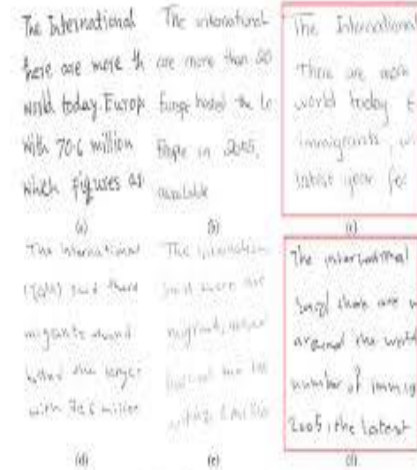 The International
there are more th
world today. Europ
With 70.6 million
which figures as
(a)
The international
are more than 20
Europe hosted the la
Europe in 2005,
available
(b)
The International
There are more
world today E
immigrants, wi
latest year for
(c)
The International
(IOM) said there
migrants around
hosted the larges
with 70.6 million
(d)
The internation
said there are
migrants, aroun
(e)
The international
said there are
around the world
number of immig
2005, the latest
(f)